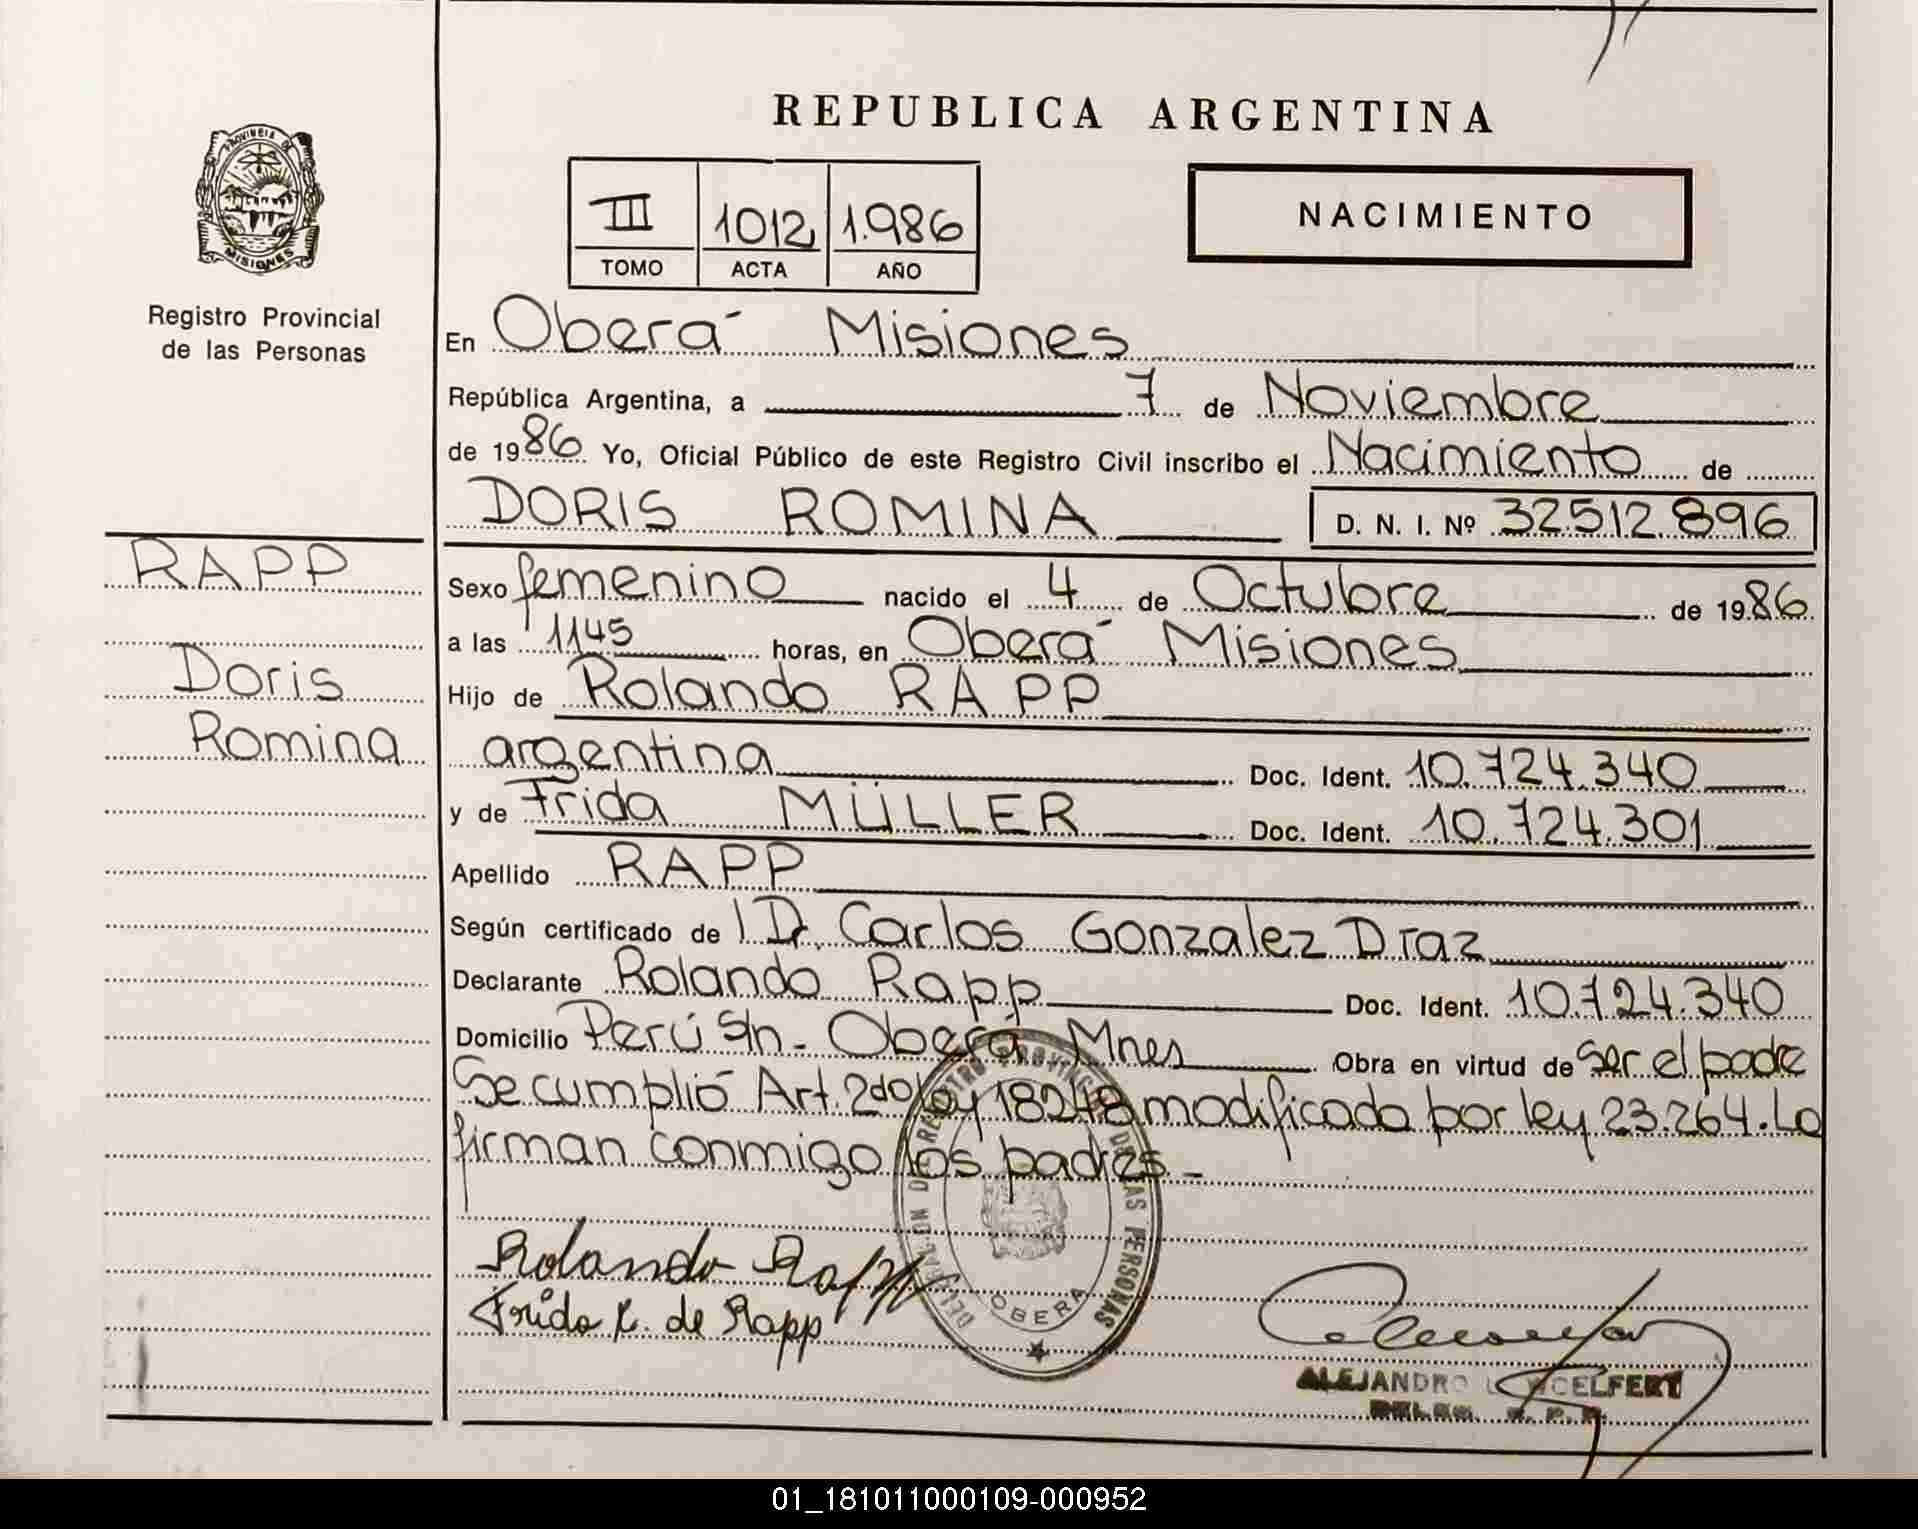 REPUBLICA ARGENTINA
PROVINCIA DE
MISIONES
Registro Provincial
de las Personas
III 1012 1.986
TOMO ACTA AÑO
NACIMIENTO
En Oberá Misiones
República Argentina, a 7 de Noviembre
de 1986 Yo, Oficial Público de este Registro Civil inscribo el Nacimiento de
DORIS ROMINA D. N. I. Nº 32.512.896
RAPP
Doris
Romina
Sexo femenino nacido el 4 de Octubre de 1986
a las 1145 horas, en Oberá Misiones
Hijo de Rolando RAPP
argentina Doc. Ident. 10.724.340
y de Frida MÜLLER Doc. Ident. 10.724.301
Apellido RAPP
Según certificado de l Dr. Carlos Gonzalez Diaz
Declarante Rolando Rapp Doc. Ident. 10.724.340
Domicilio Perú S/n - Oberá Mnes Obra en virtud de Ser el padre
Se cumplió Art. 2do ley 18248 modificado por ley 23.264. La
firman conmigo los padres -
Rolando Rapp
Frida de Rapp
REGISTRO PROVINCIAL DE LAS PERSONAS
OBERA
ALEJANDRO WOELFERT
01_181011000109-000952